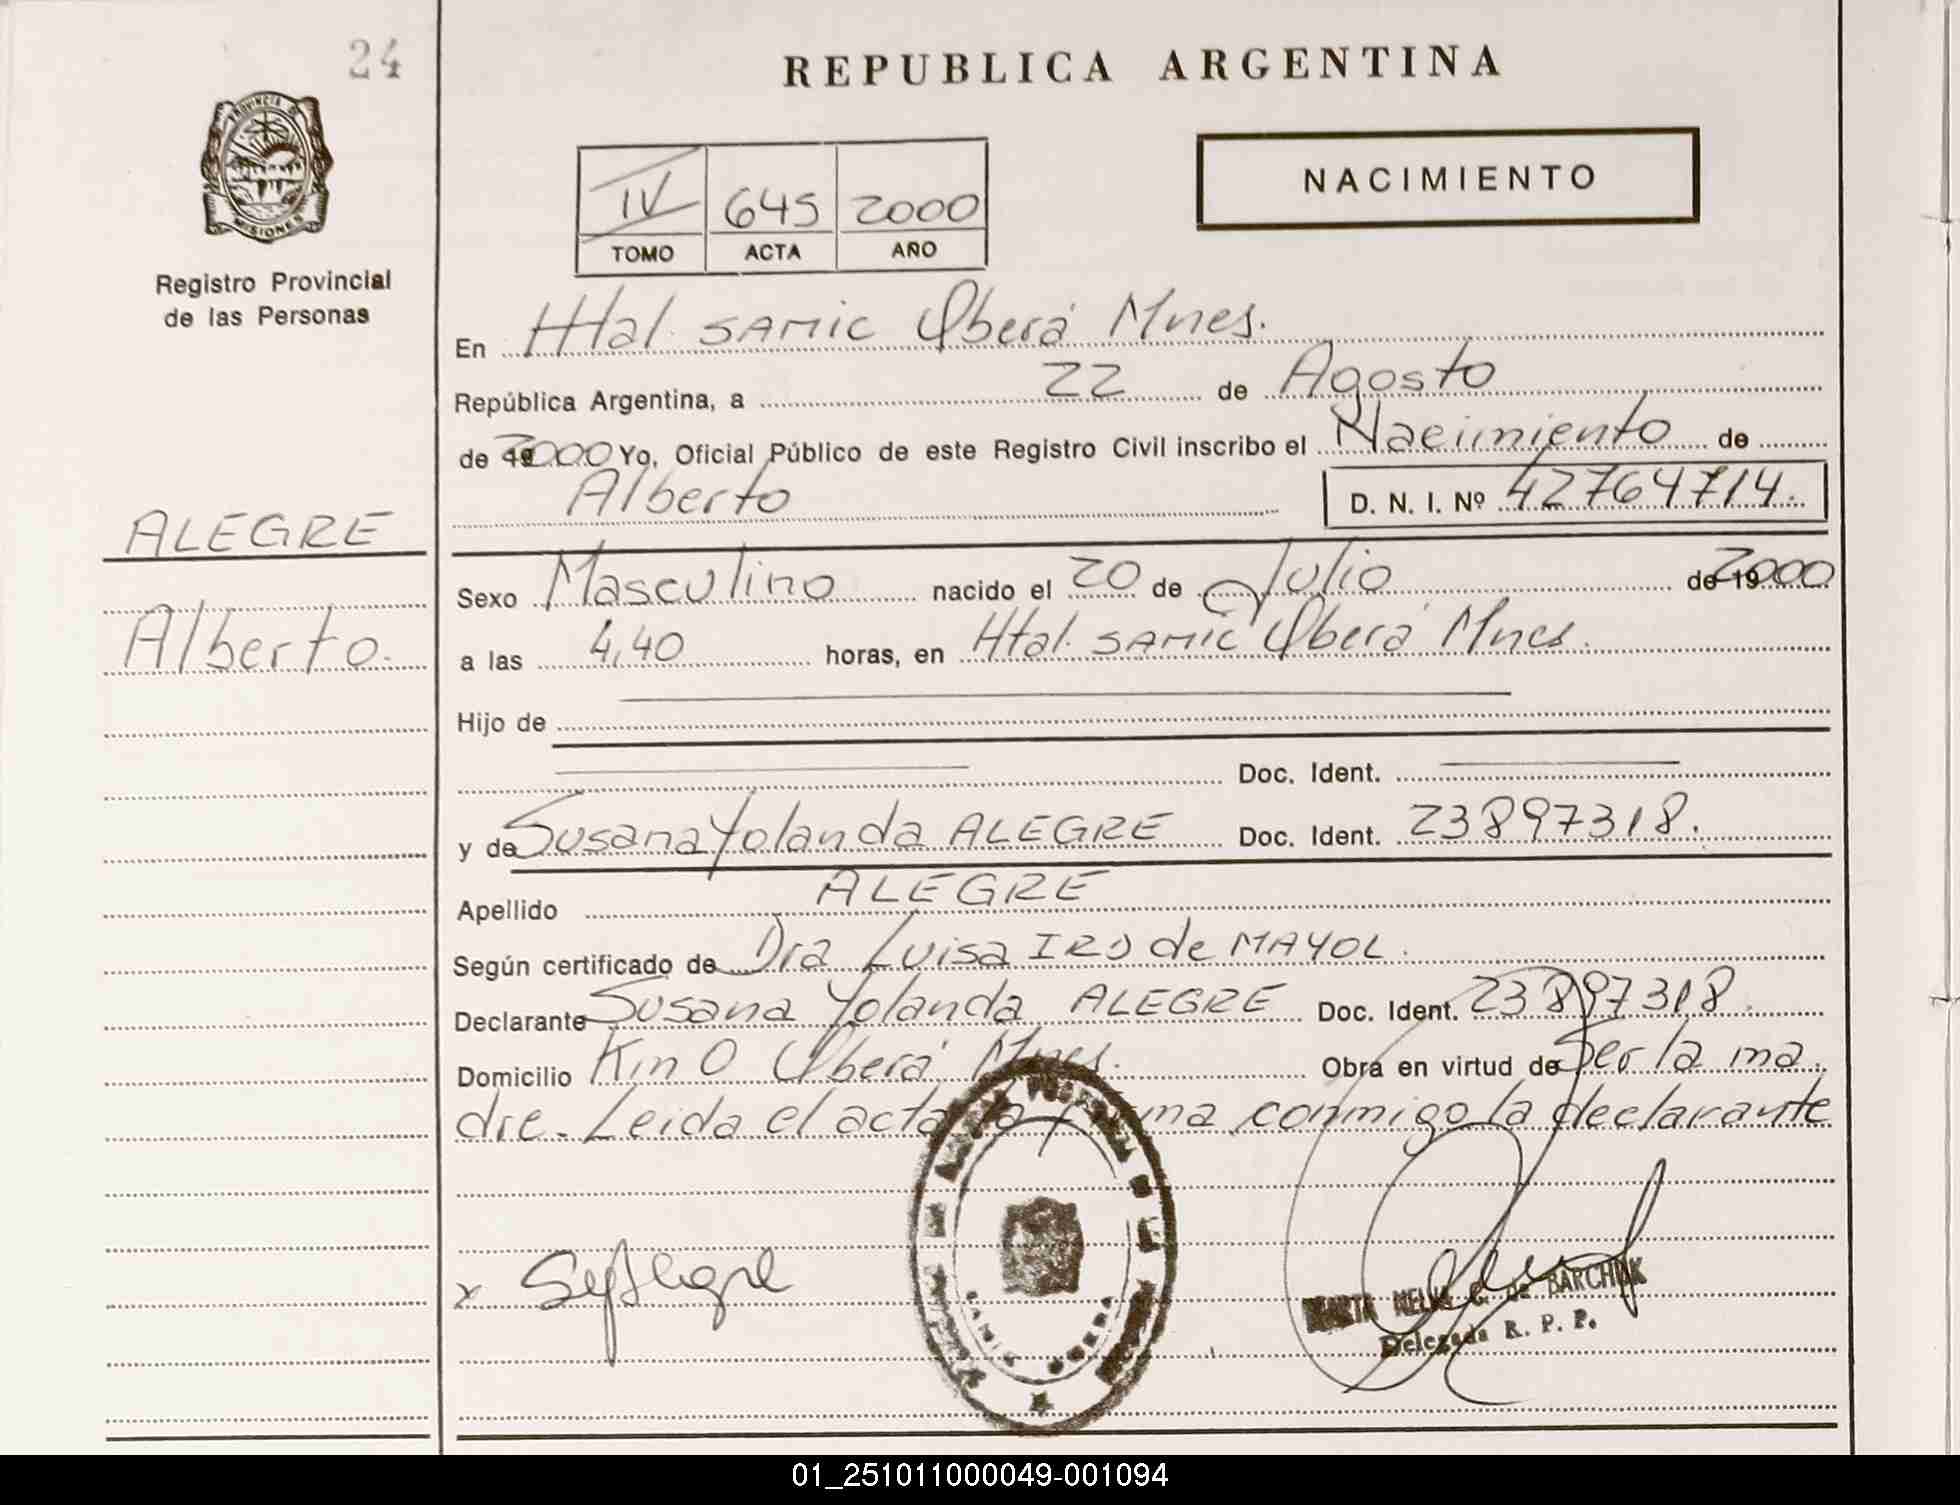 24
REPUBLICA ARGENTINA
PROVINCIA DE
MISIONES
Registro Provincial
de las Personas
NACIMIENTO
IV 645 2000
TOMO ACTA AÑO
En Htal. SAMIC Oberá Mnes.
República Argentina, a 22 de Agosto
de 2000 Yo, Oficial Público de este Registro Civil inscribo el Nacimiento de
Alberto D. N. I. Nº 42764714.
ALEGRE
Alberto.
Sexo Masculino nacido el 20 de Julio de 19 2000
a las 4,40 horas, en Htal. SAMIC Oberá Mnes.
Hijo de
Doc. Ident.
y de Susana Yolanda ALEGRE Doc. Ident. 23897318.
Apellido ALEGRE
Según certificado de Dra Luisa IRO de MAYOL.
Declarante Susana Yolanda ALEGRE Doc. Ident. 23897318.
Domicilio Km 0 Oberá Mnes. Obra en virtud de Ser la ma.
dre. Leida el acta la firma conmigo la declarante
x SyAlegre
SAMIC OBERA
MARTA NELIDA G. de BARCHUK
Delegada R. P. P.
01_251011000049-001094